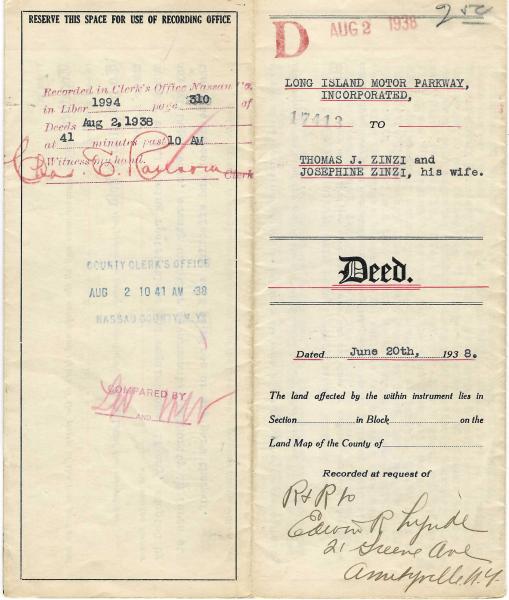 RESERVE THIS SPACE FOR USE OF RECORDING OFFICE
Recorded in Clerk's Office Nassau Co.
in Liber 1994 page 310 of
Deeds Aug 2,1938
at 41 minutes past 10 AM
Witness my hand.
Clerk
COUNTY CLERK'S OFFICE
AUG 2 10 41 AM '38
NASSAU COUNTY, N.Y.
COMPARED BY
AND
D
AUG 2 1938
LONG ISLAND MOTOR PARKWAY,
INCORPORATED,
17413
TO
THOMAS J. ZINZI and
JOSEPHINE ZINZI, his wife.
Deed.
Dated June 20th, 1938.
The land affected by the within instrument lies in
Section in Block on the
Land Map of the County of
Recorded at request of
R & R to
Edwin R Lynde
21 Greene Ave
Amityville N.Y.